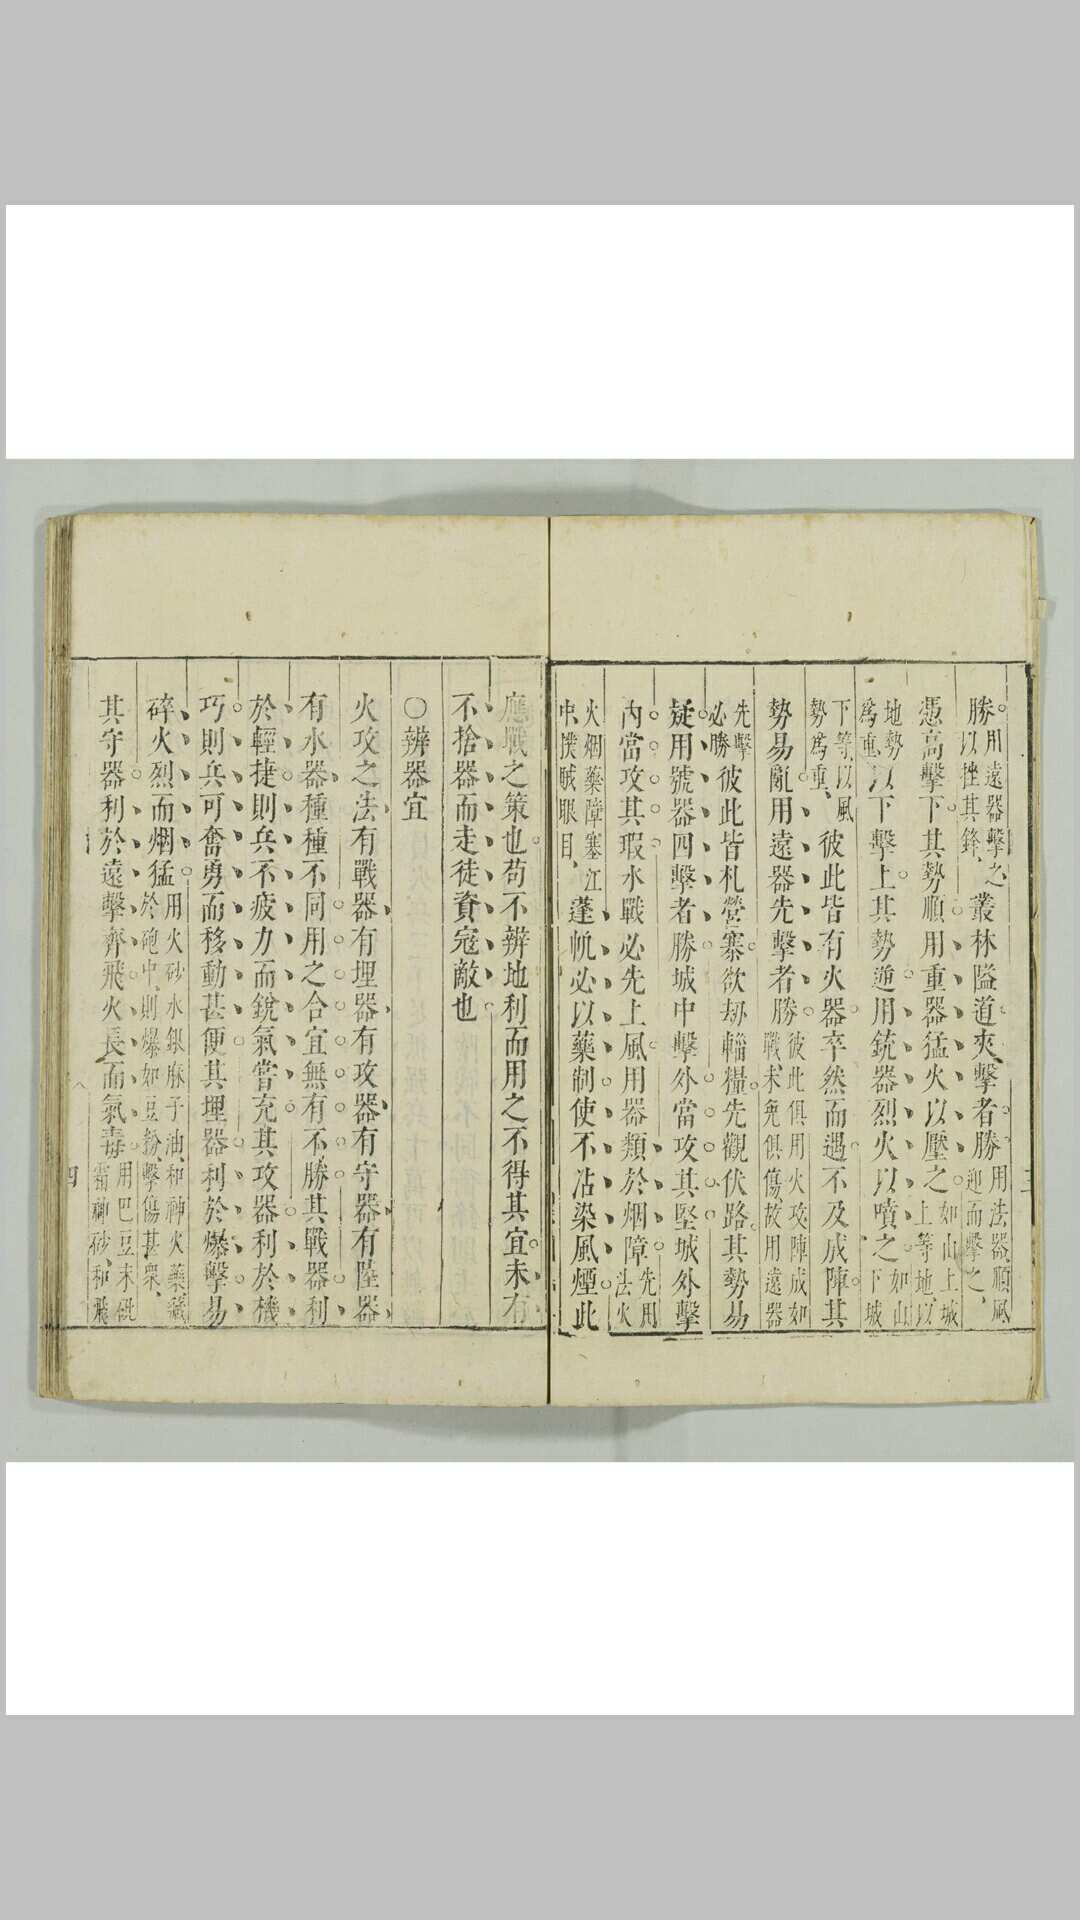 勝用遠器擊之以挫其鋒叢林隘道夾擊者勝用法器順風迎而擊之
憑高擊下其勢順用重器猛火以壓之如山上城上等地以
地勢爲重以下擊上其勢逆用銃器烈火以噴之如山下城
下等以風勢爲重彼此皆有火器卒然而遇不及成陣其
勢易亂用遠器先擊者勝彼此俱用火攻陣成如戰未免俱傷故用遠器
先擊必勝彼此皆札營寨欲刼輜糧先觀伏路其勢易
疑用號器四擊者勝城中擊外當攻其堅城外擊
内當攻其瑕水戰必先上風用器類於烟障先用法火
火烟藥障塞江中撲賊眼目蓬帆必以藥制使不沾染風煙此
三
應戰之策也苟不辨地利而用之不得其宜未有
不捨器而走徒資寇敵也
○辨器宜
火攻之法有戰器有埋器有攻器有守器有陸器
有水器種種不同用之合宜無有不勝其戰器利
於輕捷則兵不疲力而銳氣嘗充其攻器利於機
巧則兵可奮勇而移動甚便其埋器利於爆擊易
碎火烈而烟猛用火砂水銀麻子油和神火藥藏於砲中則爆如豆粉擊傷甚衆
其守器利於遠擊齊飛火長而氣毒用巴豆末砒霜硇砂和飛
四